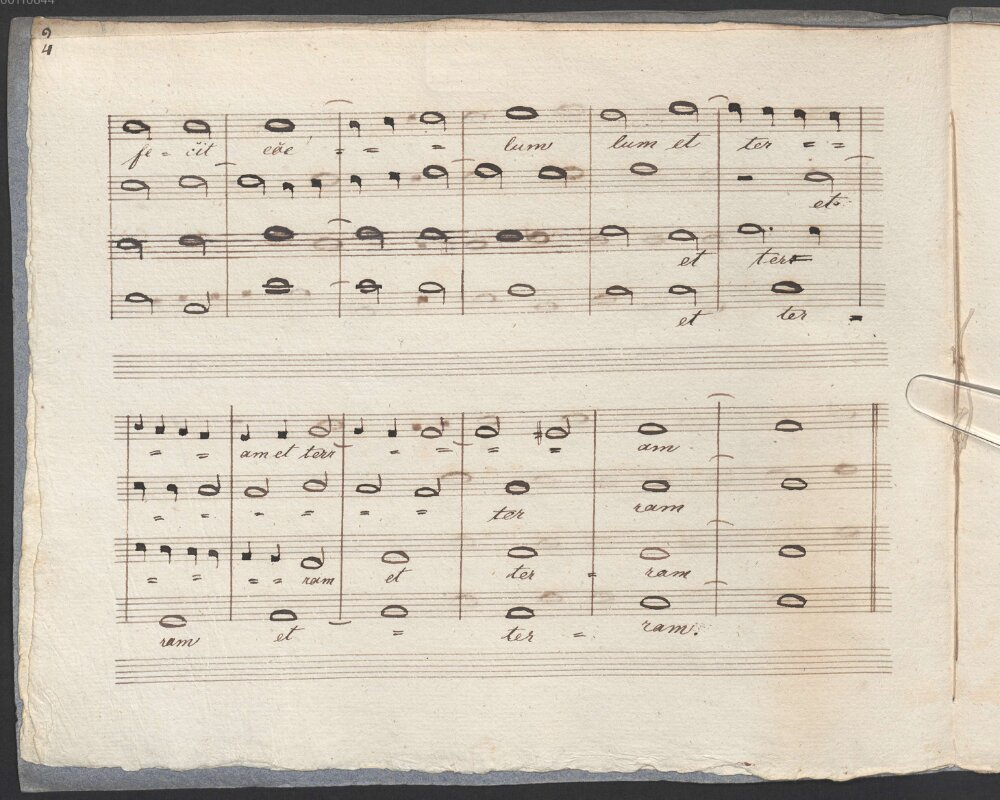 2
4
fe = cit cœ = = = lum lum et ter = =
et
et ter =
et ter
= = am et terr = = = = am
= = = = = = ter ram
= = = = ram et ter = ram
ram et = ter = ram.